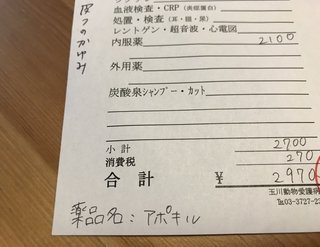 皮フのかゆみ
血液検査・CRP(炎症蛋白)
処置・検査(耳・糞・尿)
レントゲン・超音波・心電図
内服薬 2100
外用薬
炭酸泉シャンプー・カット
小計 2700
消費税 270
合計 ¥ 2970
玉川動物愛護病
TEL03-3727-23
薬品名:アポキル